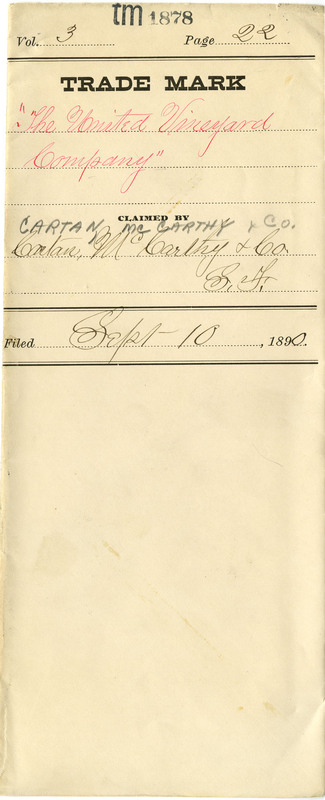 tm 1878
Vol. 3 Page 22
TRADE MARK
"The United Vineyard
Company"
CLAIMED BY
CARTAN, MCCARTHY & CO.
Cartan, McCarthy & Co.
S. F.
Filed Sept 10, 1890.